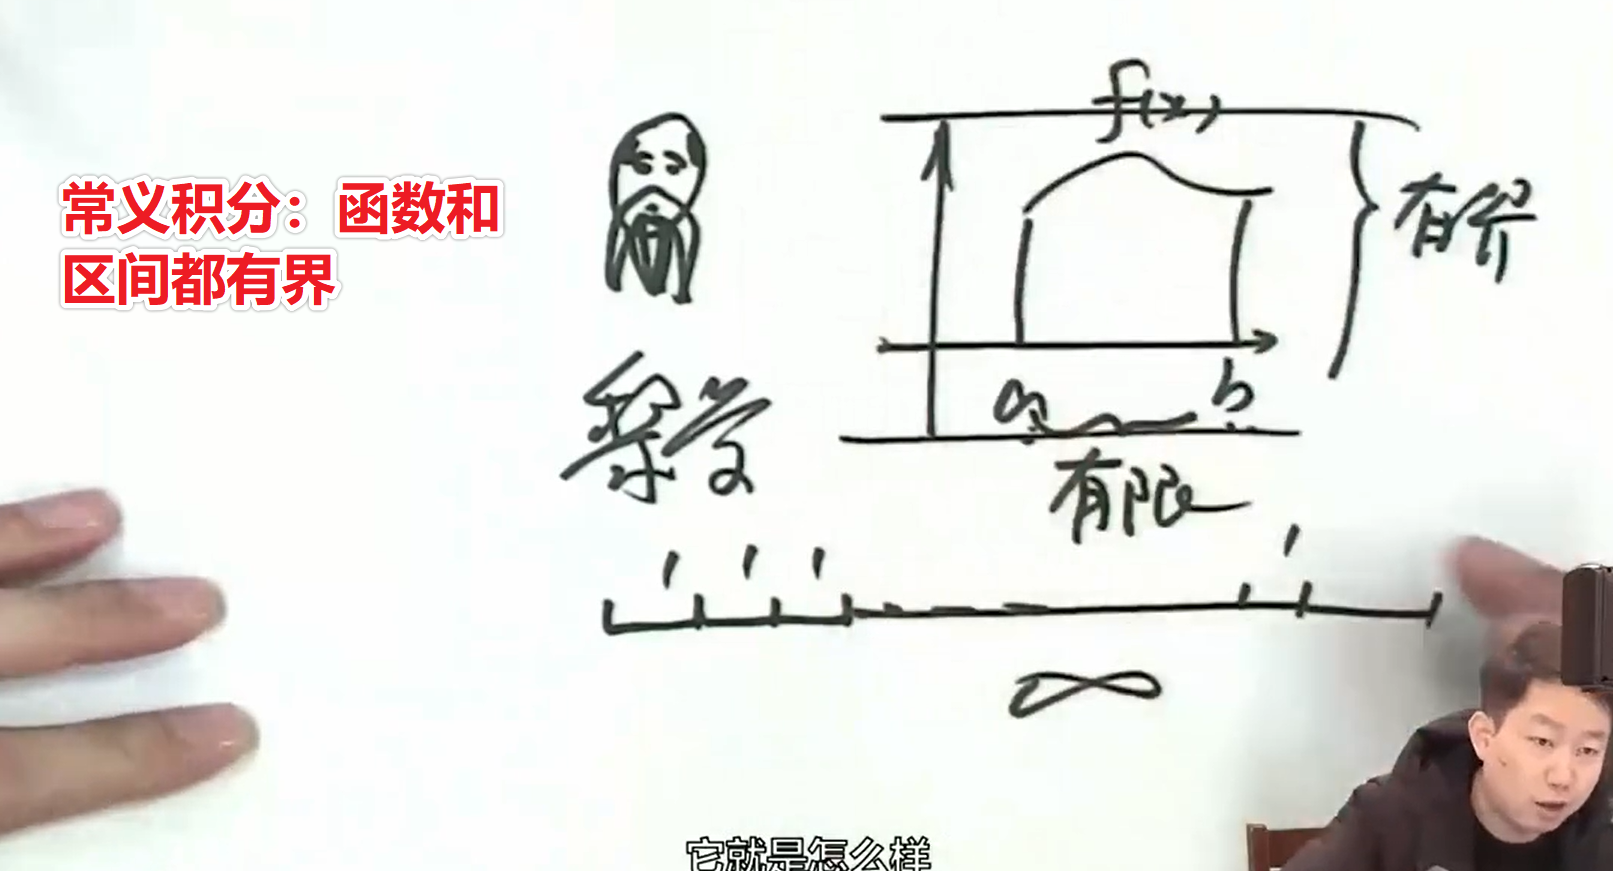 常义积分：函数和
区间都有界
f(x)
有界
黎曼
a b
有限
∞
它就是怎么样